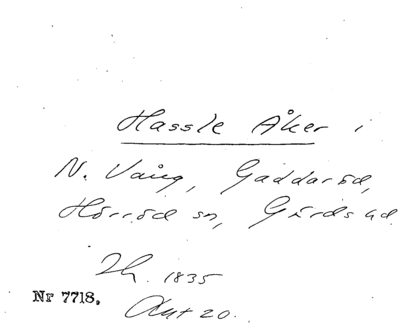 Hassle Åker i
N. Vång, Gaddaröd,
Hörröd sn, Gärds hd.
Lh. 1835
Nr 7718.
Akt 20.